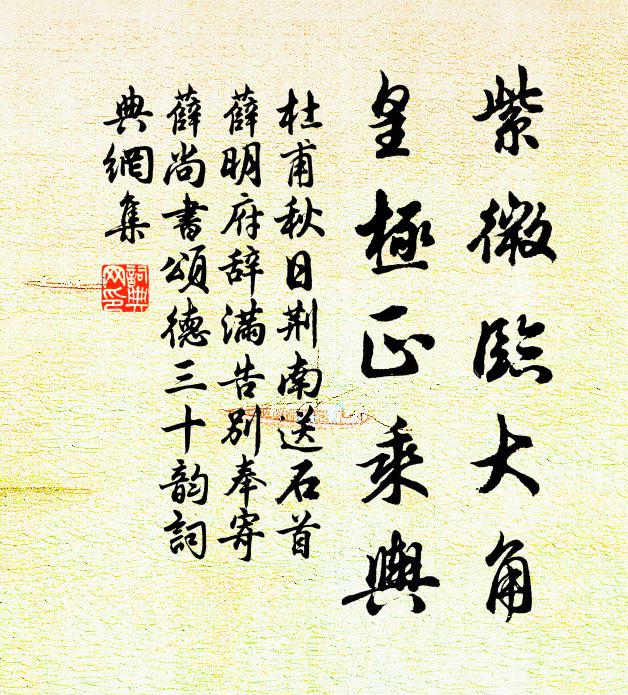 紫微臨大角
皇極正乘輿
杜甫秋日荆南送石首
薛明府辞满告别奉寄
薛尚書頌德三十韵詞
典網集
詞典网印